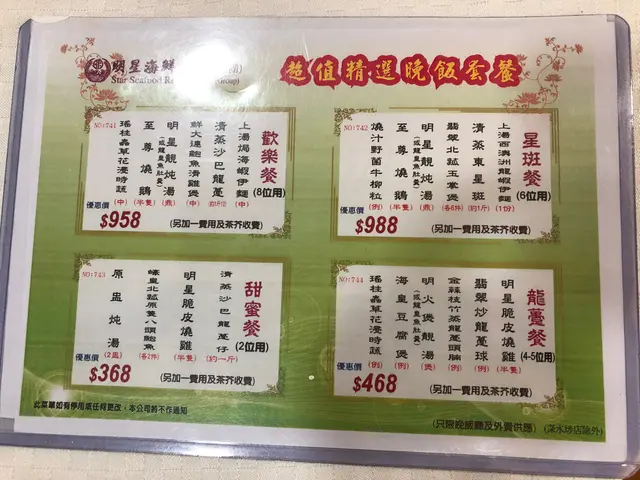 明星海鮮
Star Seafood Re
Group)
超值精選晚飯套餐
NO:741
歡樂餐
(8位用)
上湯焗海蝦伊麵 (中)
清蒸沙巴龍躉
鮮大連鮑魚滑雞煲 (中)
明星靚炖湯 (燕)
(或龍皇魚肚羹)
至尊燒鵝 (半隻)
瑤柱蟲草花浸時蔬 (中)
優惠價
$958
(另加一費用及茶芥收費)
NO:742
星斑餐
(6位用)
上湯西澳洲龍蝦伊麵 (1份)
清蒸東星斑 (約1斤)
翡翠北菰玉掌煲 (各6件)
明星靚炖湯 (燕)
(或龍皇魚肚羹)
至尊燒鵝 (半隻)
燒汁野菌牛柳粒 (例)
優惠價
$988
(另加一費用及茶芥收費)
NO:743
甜蜜餐
(2位用)
清蒸沙巴龍躉仔 (約一斤)
明星脆皮燒雞 (半隻)
蠔皇北菰原隻八頭鮑魚 (各2件)
原盅炖湯 (2盅)
優惠價
$368
(另加一費用及茶芥收費)
NO:744
龍躉餐
(4-5位用)
明星脆皮燒雞 (半隻)
翡翠炒龍躉球 (例)
金菰桂竹蒸龍躉頭腩 (例)
明火煲靚湯 (煲)
(或龍皇魚肚羹)
海皇豆腐煲 (例)
瑤柱蟲草花浸時蔬 (例)
優惠價
$468
(另加一費用及茶芥收費)
此菜單如有停用或任何更改，本公司將不作通知
(只限晚飯廳及外賣供應)
(深水埗店除外)